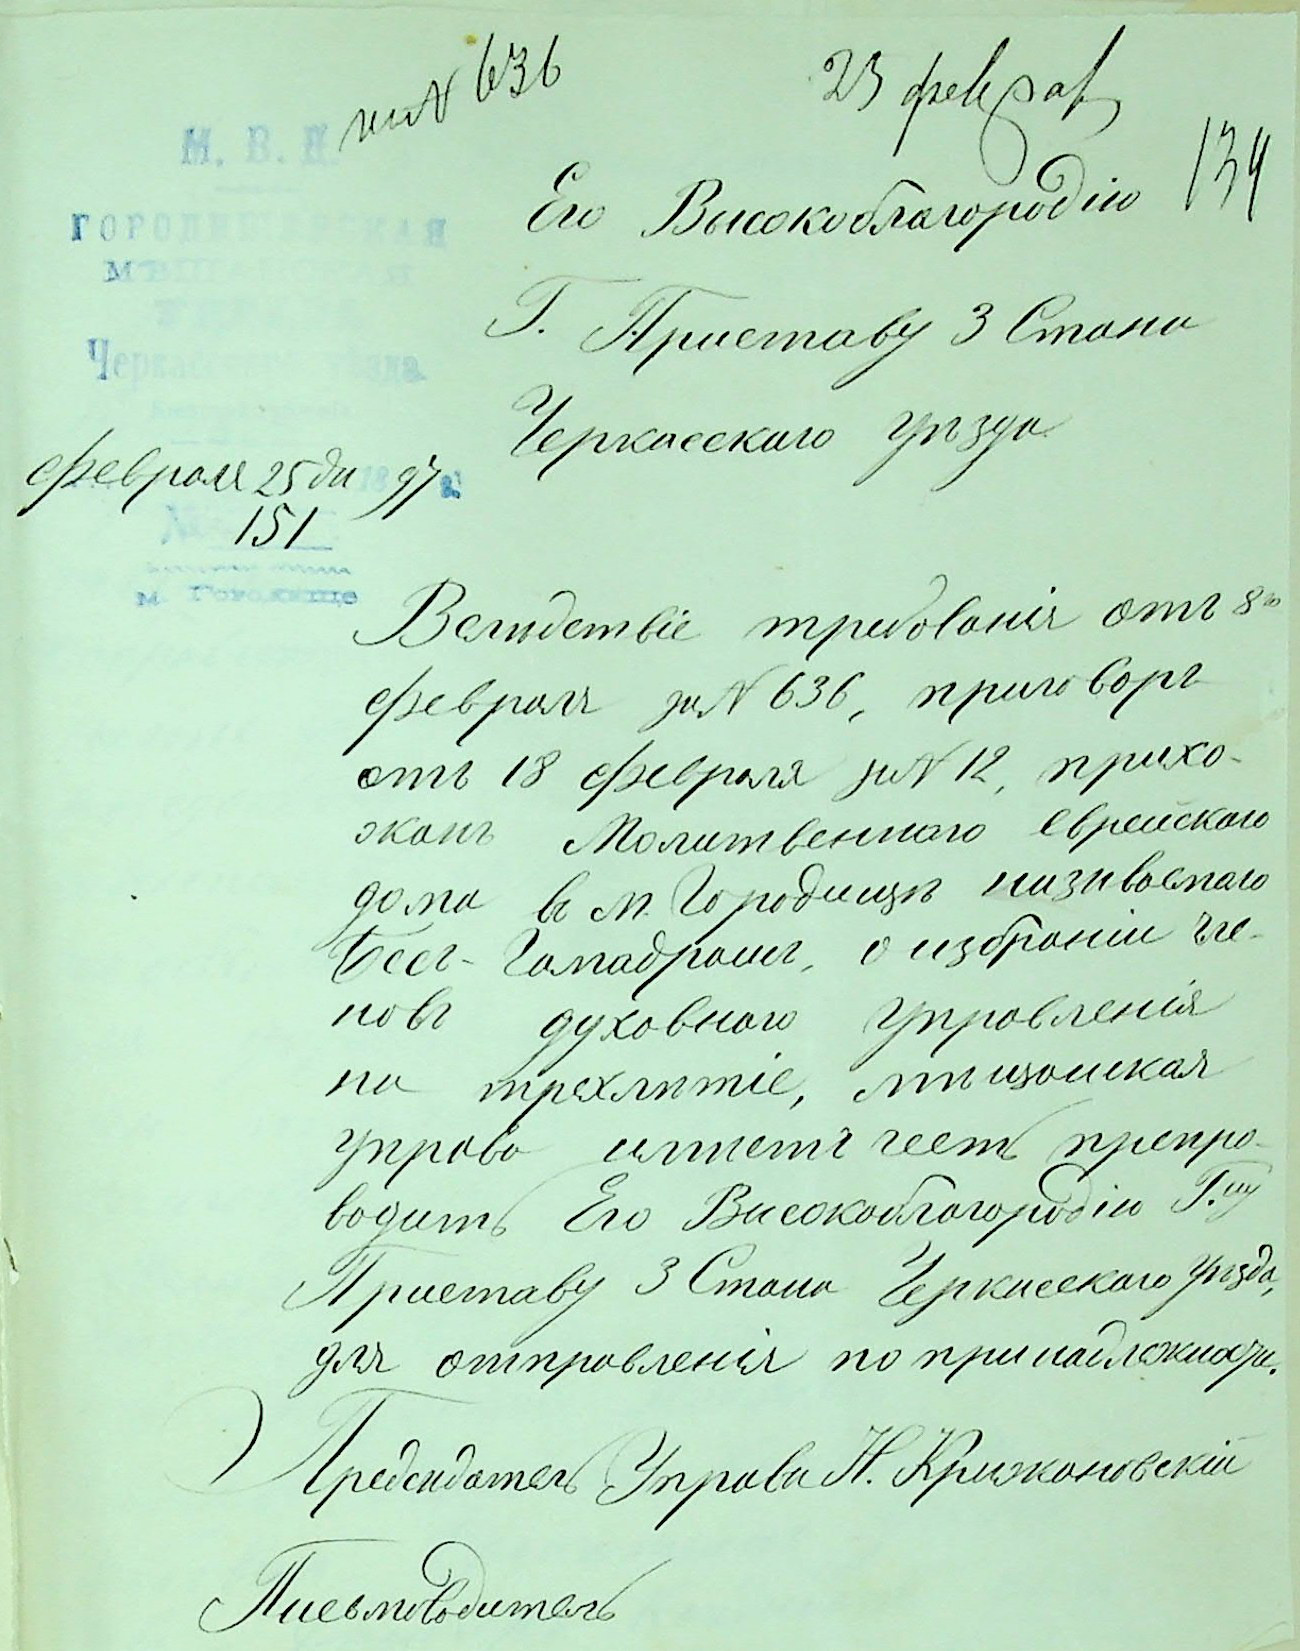 на № 636
25 феврал
134
М. В. Д.
ГОРОДИЩЕНСКАЯ
МѢЩАНСКАЯ
УПРАВА
Черкасскаго уѣзда
февраля 25 дн 97
№ 151
м. Городище
Его Высокоблагородію
Г. Приставу 3 Стана
Черкасскаго уѣзда
Вслѣдствіе требованія отъ 8го
февраля за № 636, приговоръ
отъ 18 февраля за № 12, прихо-
жанъ Молитвеннаго еврейскаго
дома въ м. Городищѣ називаемаго
Бесъ-Гамадрашъ, о избраніи чле-
новъ духовнаго управленія
на трехлѣтіе, мѣщанская
управа имѣетъ честь препро-
водить Его Високоблагородію Г.ну
Приставу 3 Стана Черкасскаго уѣзда,
для отправленія по принадлежности.
Предсѣдатель Управы Н. Крижановскій
Письмоводитель